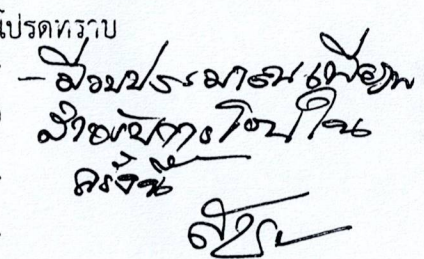 โปรดทราบ
- มีงบประมาณเพียงพอ
สำหรับการโอนใน
ครั้งนี้